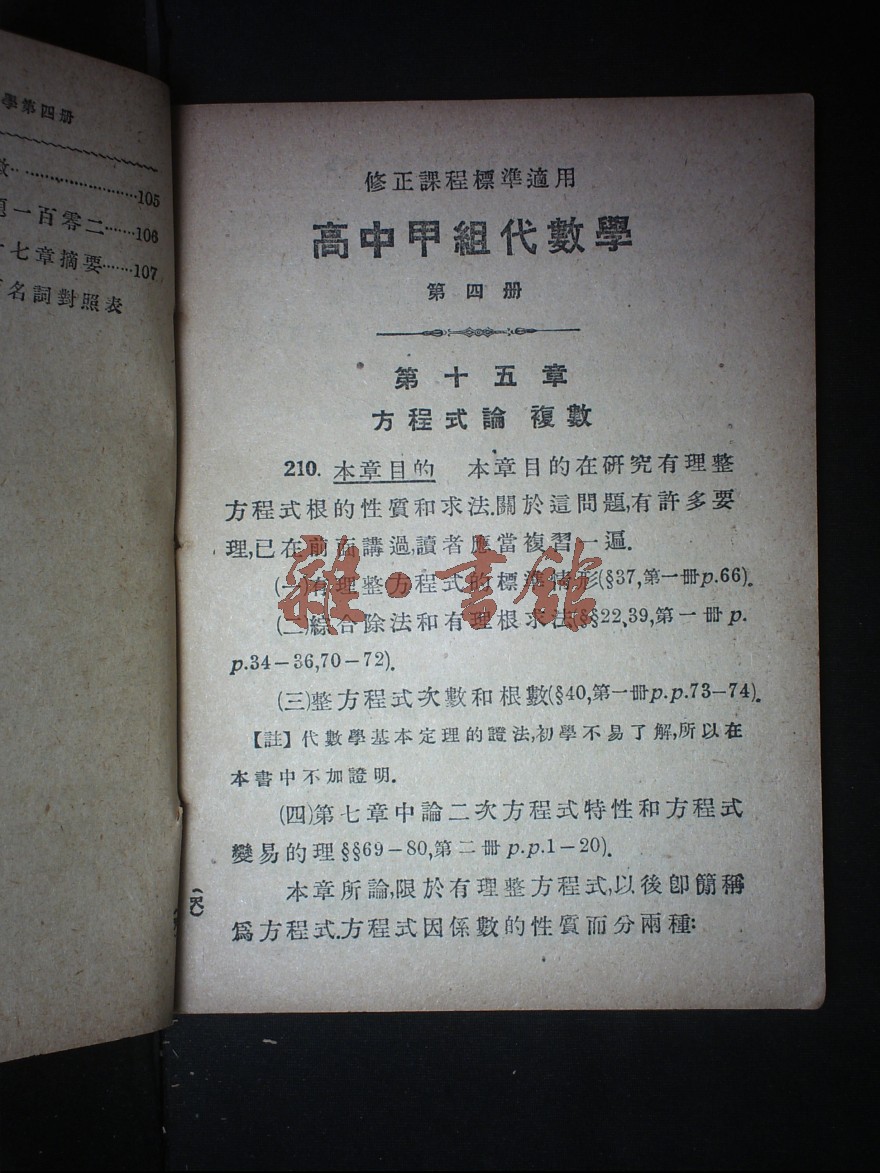 學第四册
數……105
題一百零二……106
十七章摘要……107
名詞對照表
修正課程標準適用
高中甲組代數學
第四册
第十五章
方程式論 複數
210. 本章目的 本章目的在研究有理整
方程式根的性質和求法.關於這問題,有許多要
理,已在前面講過,讀者應當複習一遍.
(一)有理整方程式的標準情形(§37,第一册p.66).
(二)綜合除法和有理根求法(§§22,39,第一册p.
p.34-36,70-72).
(三)整方程式次數和根數(§40,第一册p.p.73-74).
【註】代數學基本定理的證法,初學不易了解,所以在
本書中不加證明.
(四)第七章中論二次方程式特性和方程式
變易的理§§69-80,第二册p.p.1-20).
本章所論,限於有理整方程式,以後卽簡稱
爲方程式.方程式因係數的性質而分兩種:
雜·書館